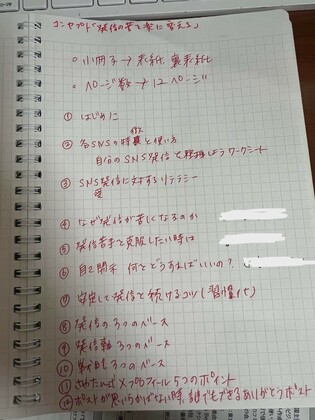 コンセプト「発信の苦を楽に変える」
・小冊子→表紙、裏表紙
・ページ数→12ページ
① はじめに
② 各SNSの特徴と使い方
自分のSNS発信を整理しようワークシート
③ SNS発信に対するリテラシー
④ なぜ発信が苦しくなるのか
⑤ 発信苦手を克服したい時は
⑥ 自己開示 何をどうすればいいの?
⑦ 安定して発信を続けるコツ(習慣化)
⑧ 発信の3つのベース
⑨ 発信軸3つのベース
⑩ 3つのベース
⑪ ×プロフィール5つのポイント
⑫ ポストが思いうかばない時、誰でもできるありがとうポスト